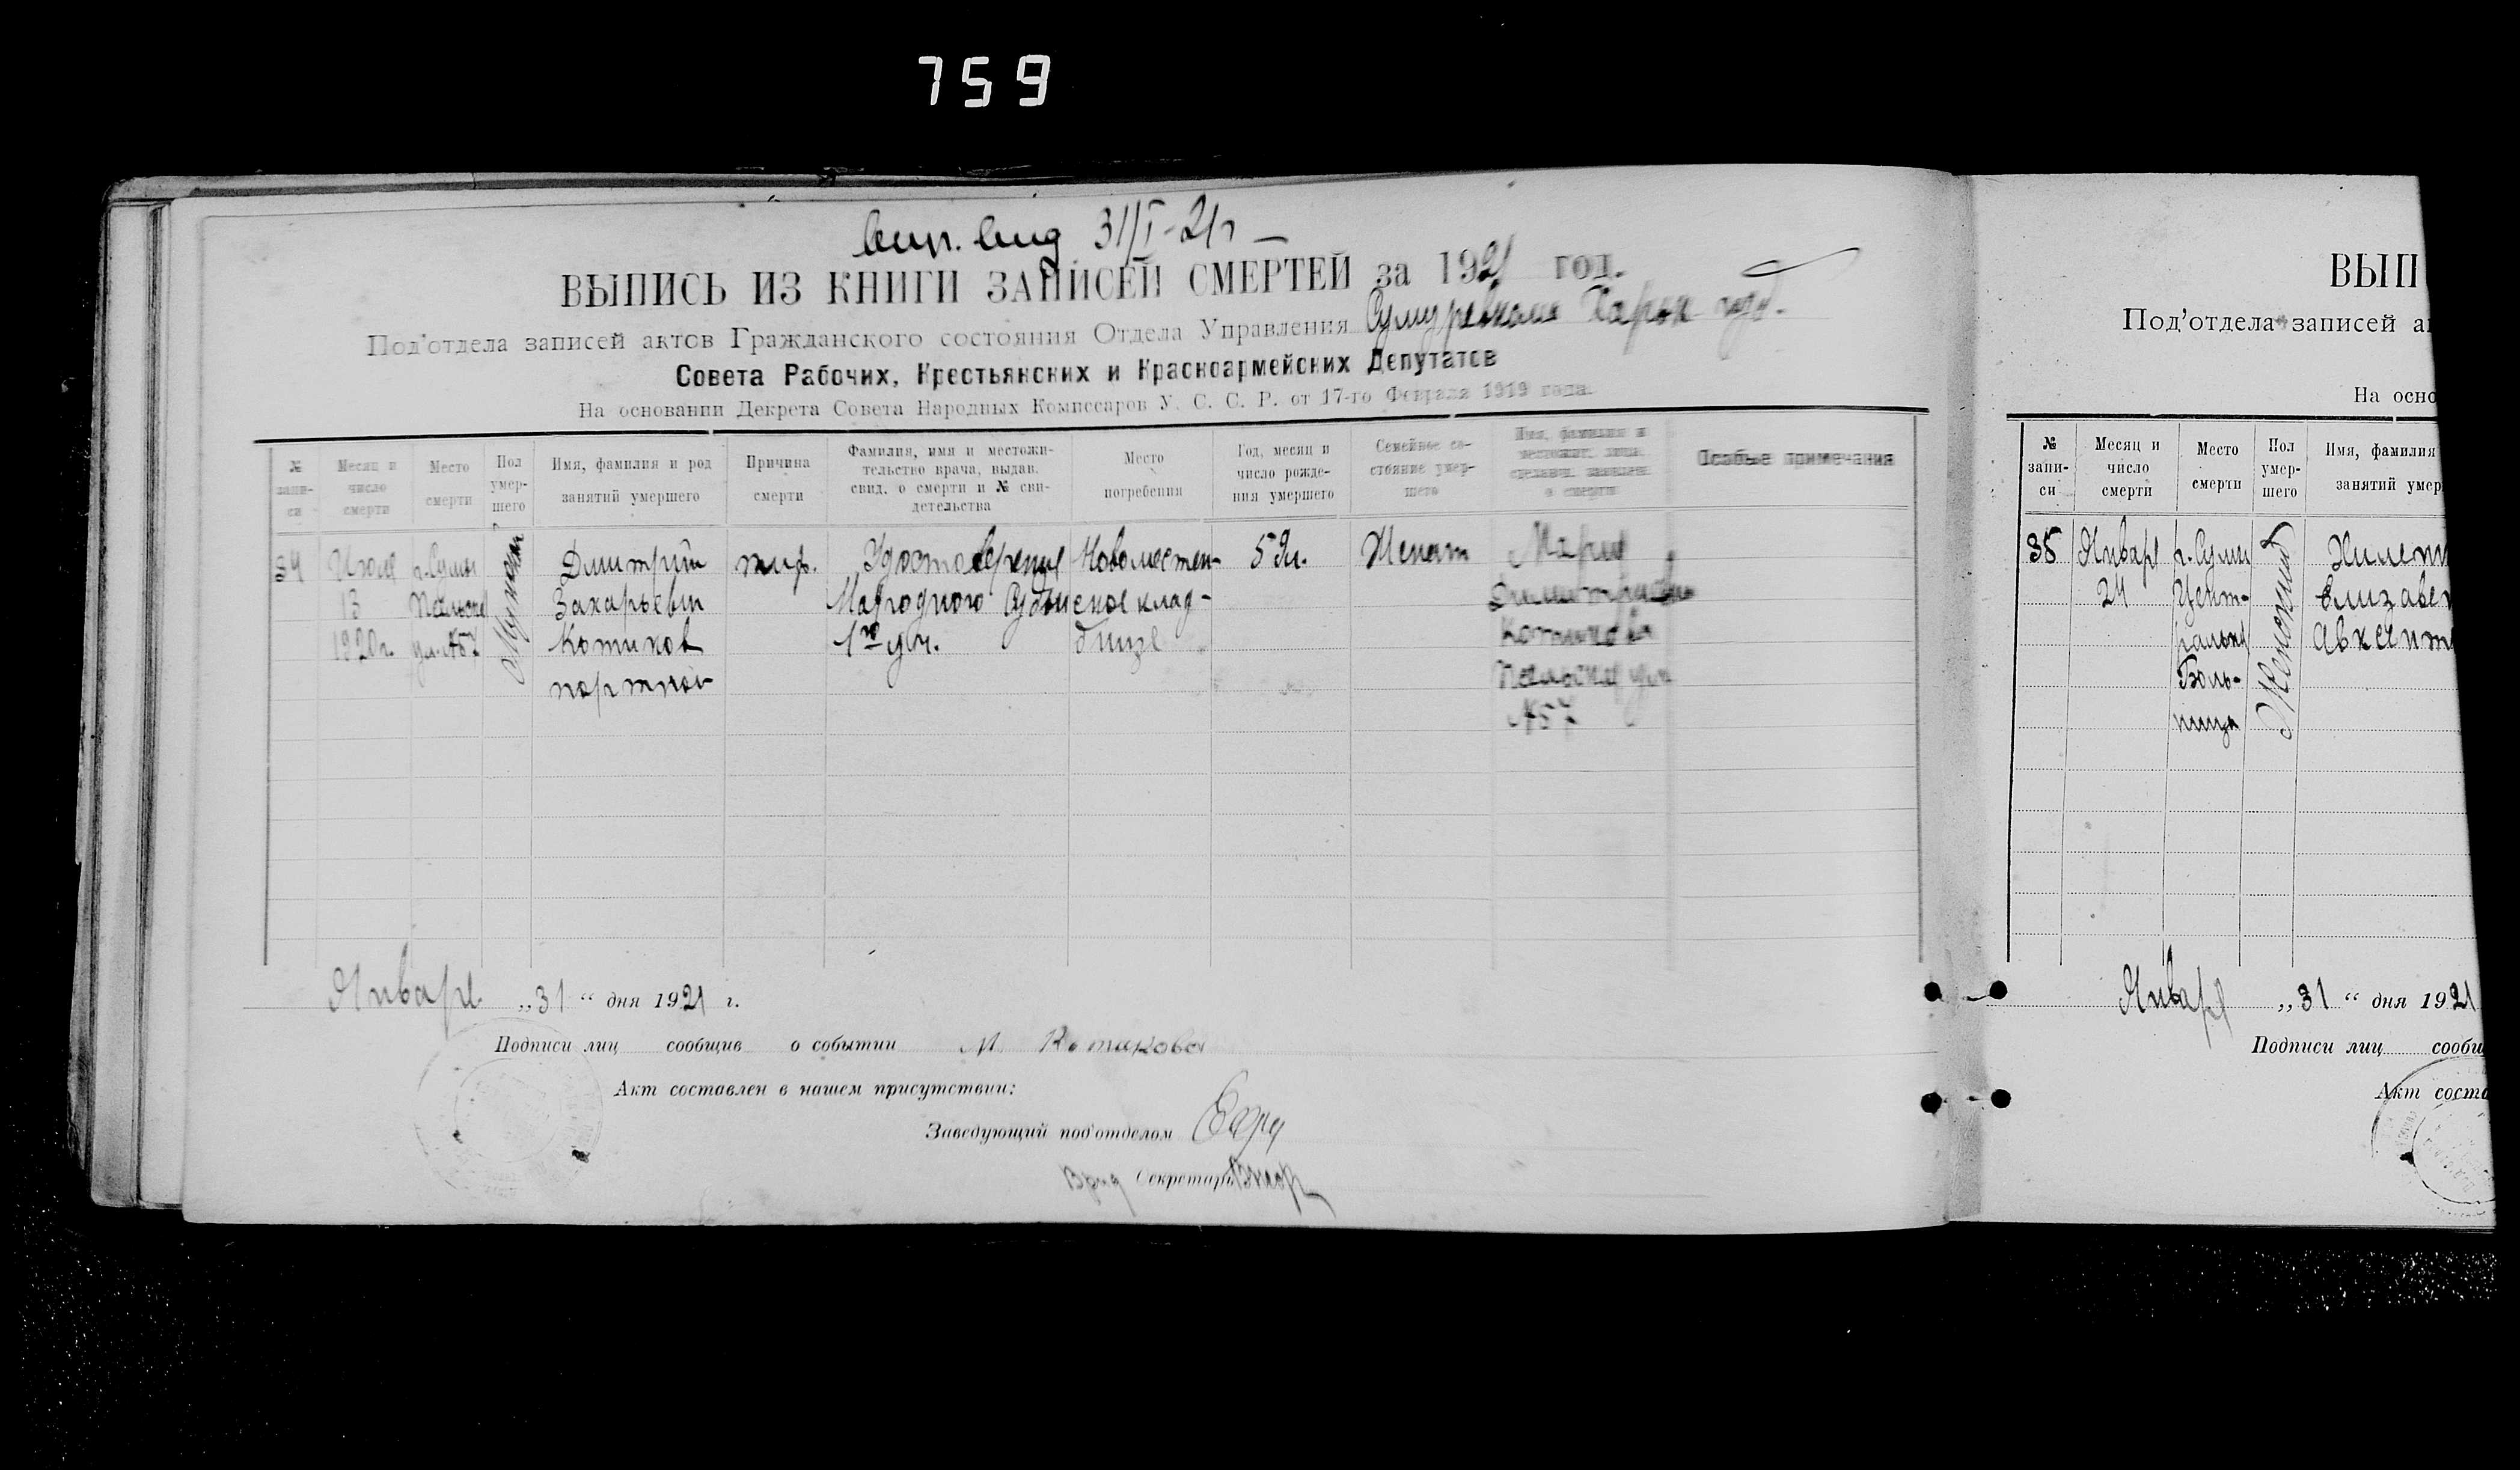 759
вып. вид 31/I-21г
ВЫПИСЬ ИЗ КНИГИ ЗАПИСЕЙ СМЕРТЕЙ за 1921 год.
Под'отдела записей актов Гражданского состояния Отдела Управления Сумуревкома Харьк губ.
Совета Рабочих, Крестьянских и Красноармейских Депутатов
На основании Декрета Совета Народных Комиссаров У. С. С. Р. от 17-го Февраля 1919 года.
№ запи- си
Месяц и число смерти
Место смерти
Пол умер- шего
Имя, фамилия и род занятий умершего
Причина смерти
Фамилия, имя и местожи- тельство врача, выдав. свид. о смерти и № сви- детельства
Место погребения
Год, месяц и число рожде- ния умершего
Семейное со- стояние умер- шего
Имя, фамилия и местожит. лица, сделавш. заявлен. о смерти
Особые примечания
34
Июля
13
1920г.
г. Сумы
ул. №57
Мужской
Дмитрий
Захарьевич
Котиков
портной
тиф.
Удостоверение
Народного Суда
1го уч.
Новоместен-
ское клад-
бище
59л.
Женат
Мария
Димитриевна
Котикова
№57
Января „31“ дня 1921 г.
Подписи лиц сообщив о событии М Котикова
Акт составлен в нашем присутствии:
Заведующий под'отделом
Врид Секретарь
ВЫП
Под'отдела записей а
На осно
№ запи- си
Месяц и число смерти
Место смерти
Пол умер- шего
Имя, фамилия
занятий умер
35
Января
24
г. Сумы
Цент-
ральная
Боль-
ница
Женский
Елизавет
Января „31“ дня 1921
Подписи лиц сообщ
Акт соста